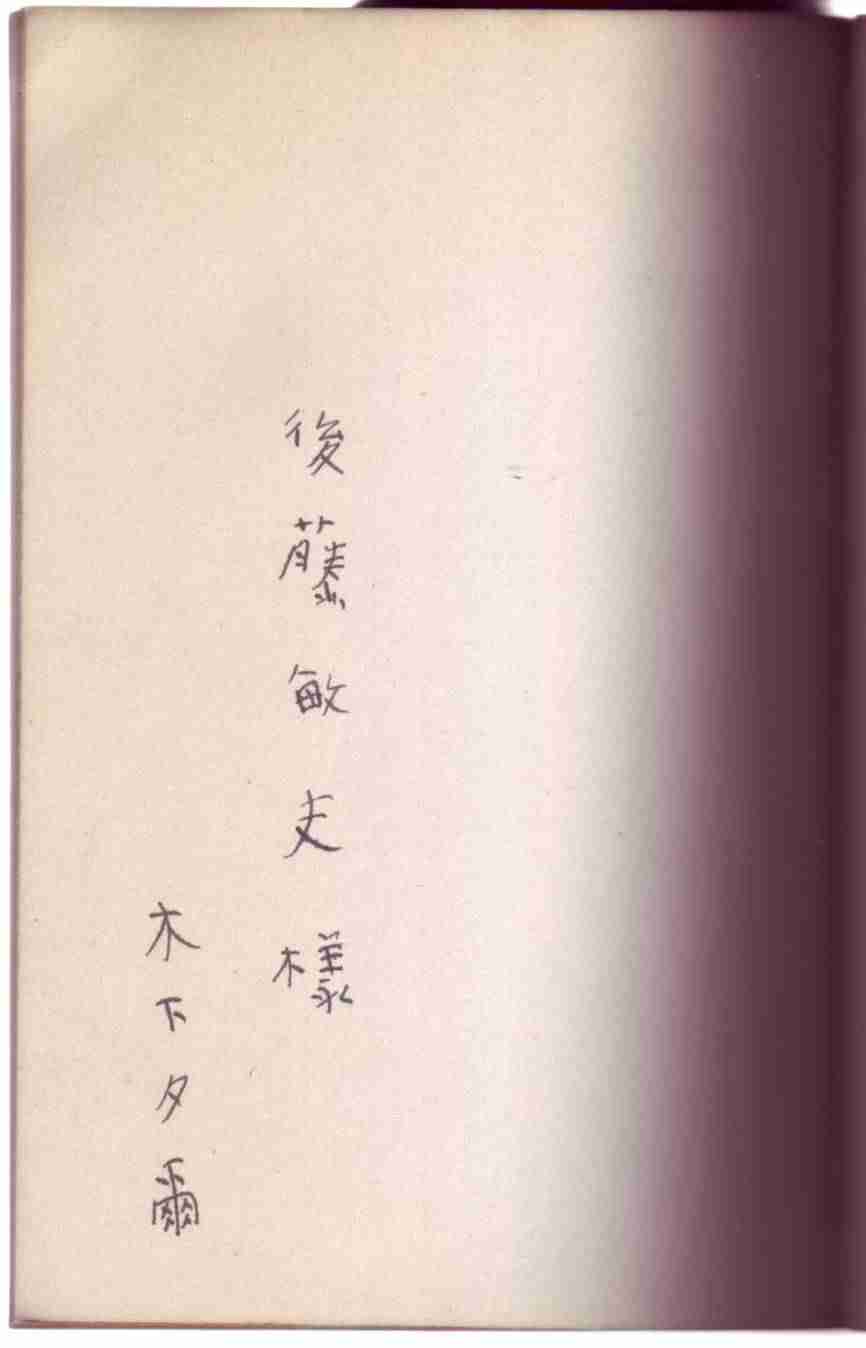 後藤敏夫様
木下夕爾